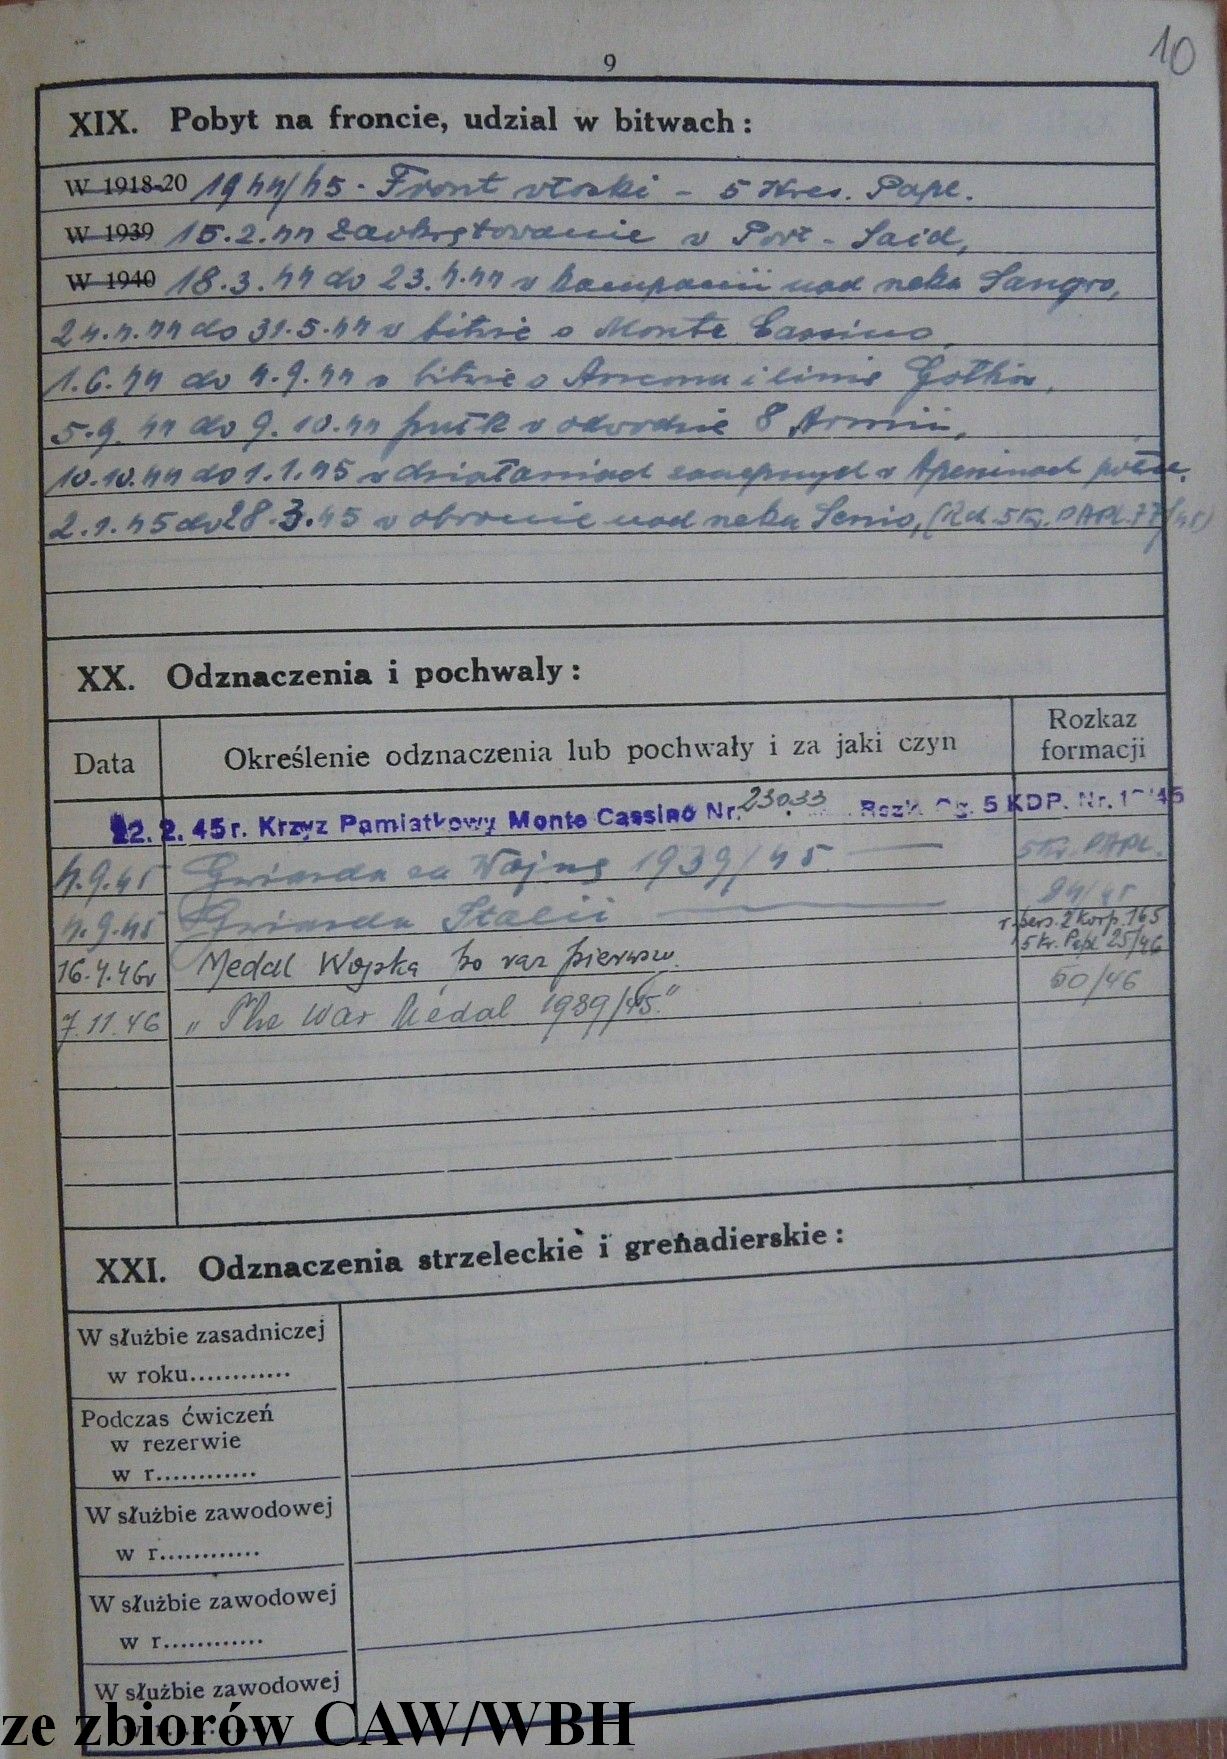 10
9
XIX. Pobyt na froncie, udzial w bitwach :
W 1918-20 1944/45 - Front włoski - 5 Kres. Papl.
W 1939 15.2.44 Zaokrętowanie w Port - Said,
W 1940 18.3.44 do 23.4.44 w kampanii nad rzeką Sangro,
24.4.44 do 31.5.44 w bitwie o Monte Cassino,
1.6.44 do 4.9.44 w bitwie o Ancona i linię Gotów,
5.9.44 do 9.10.44 pułk w odwodzie 8 Armii,
10.10.44 do 1.1.45 w działaniach zaczepnych w Apeninach półn.
2.1.45 do 28.3.45 w obronie nad rzeką Senio, (Rd. 5 Kr. PAPL. 77/45)
XX. Odznaczenia i pochwaly :
Data
Określenie odznaczenia lub pochwały i za jaki czyn
Rozkaz
formacji
22. 2. 45 r. Krzyż Pamiątkowy Monte Cassino Nr. 23033 Rozk. 5 KDP. Nr.
4.9.45 Gwiazda za Wojnę 1939/45 5 Kr. PAPL.
4.9.45 Gwiazda Italii 84/45
16.4.46r Medal Wojska po raz pierwszy r. pers. 2 Korp. 165
5 Kr. Papl 25/46
7.11.46 „The War Medal 1939/45” 50/46
XXI. Odznaczenia strzeleckie i grenadierskie :
W służbie zasadniczej
w roku............
Podczas ćwiczeń
w rezerwie
w r............
W służbie zawodowej
w r............
W służbie zawodowej
w r............
W służbie zawodowej
ze zbiorów CAW/WBH